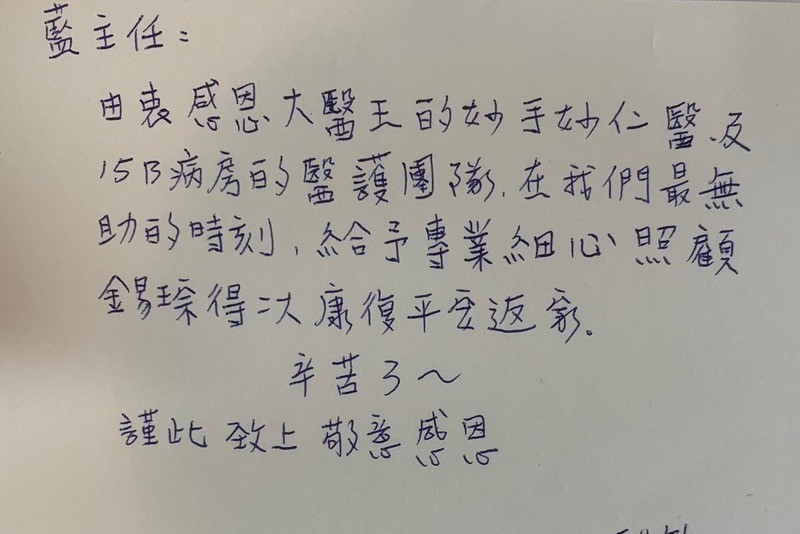 藍主任：
由衷感恩大醫王的妙手妙仁醫及
15B病房的醫護團隊,在我們最無
助的時刻,給予專業細心照顧
錫琛得以康復平安返家。
辛苦了～
謹此致上敬意感恩